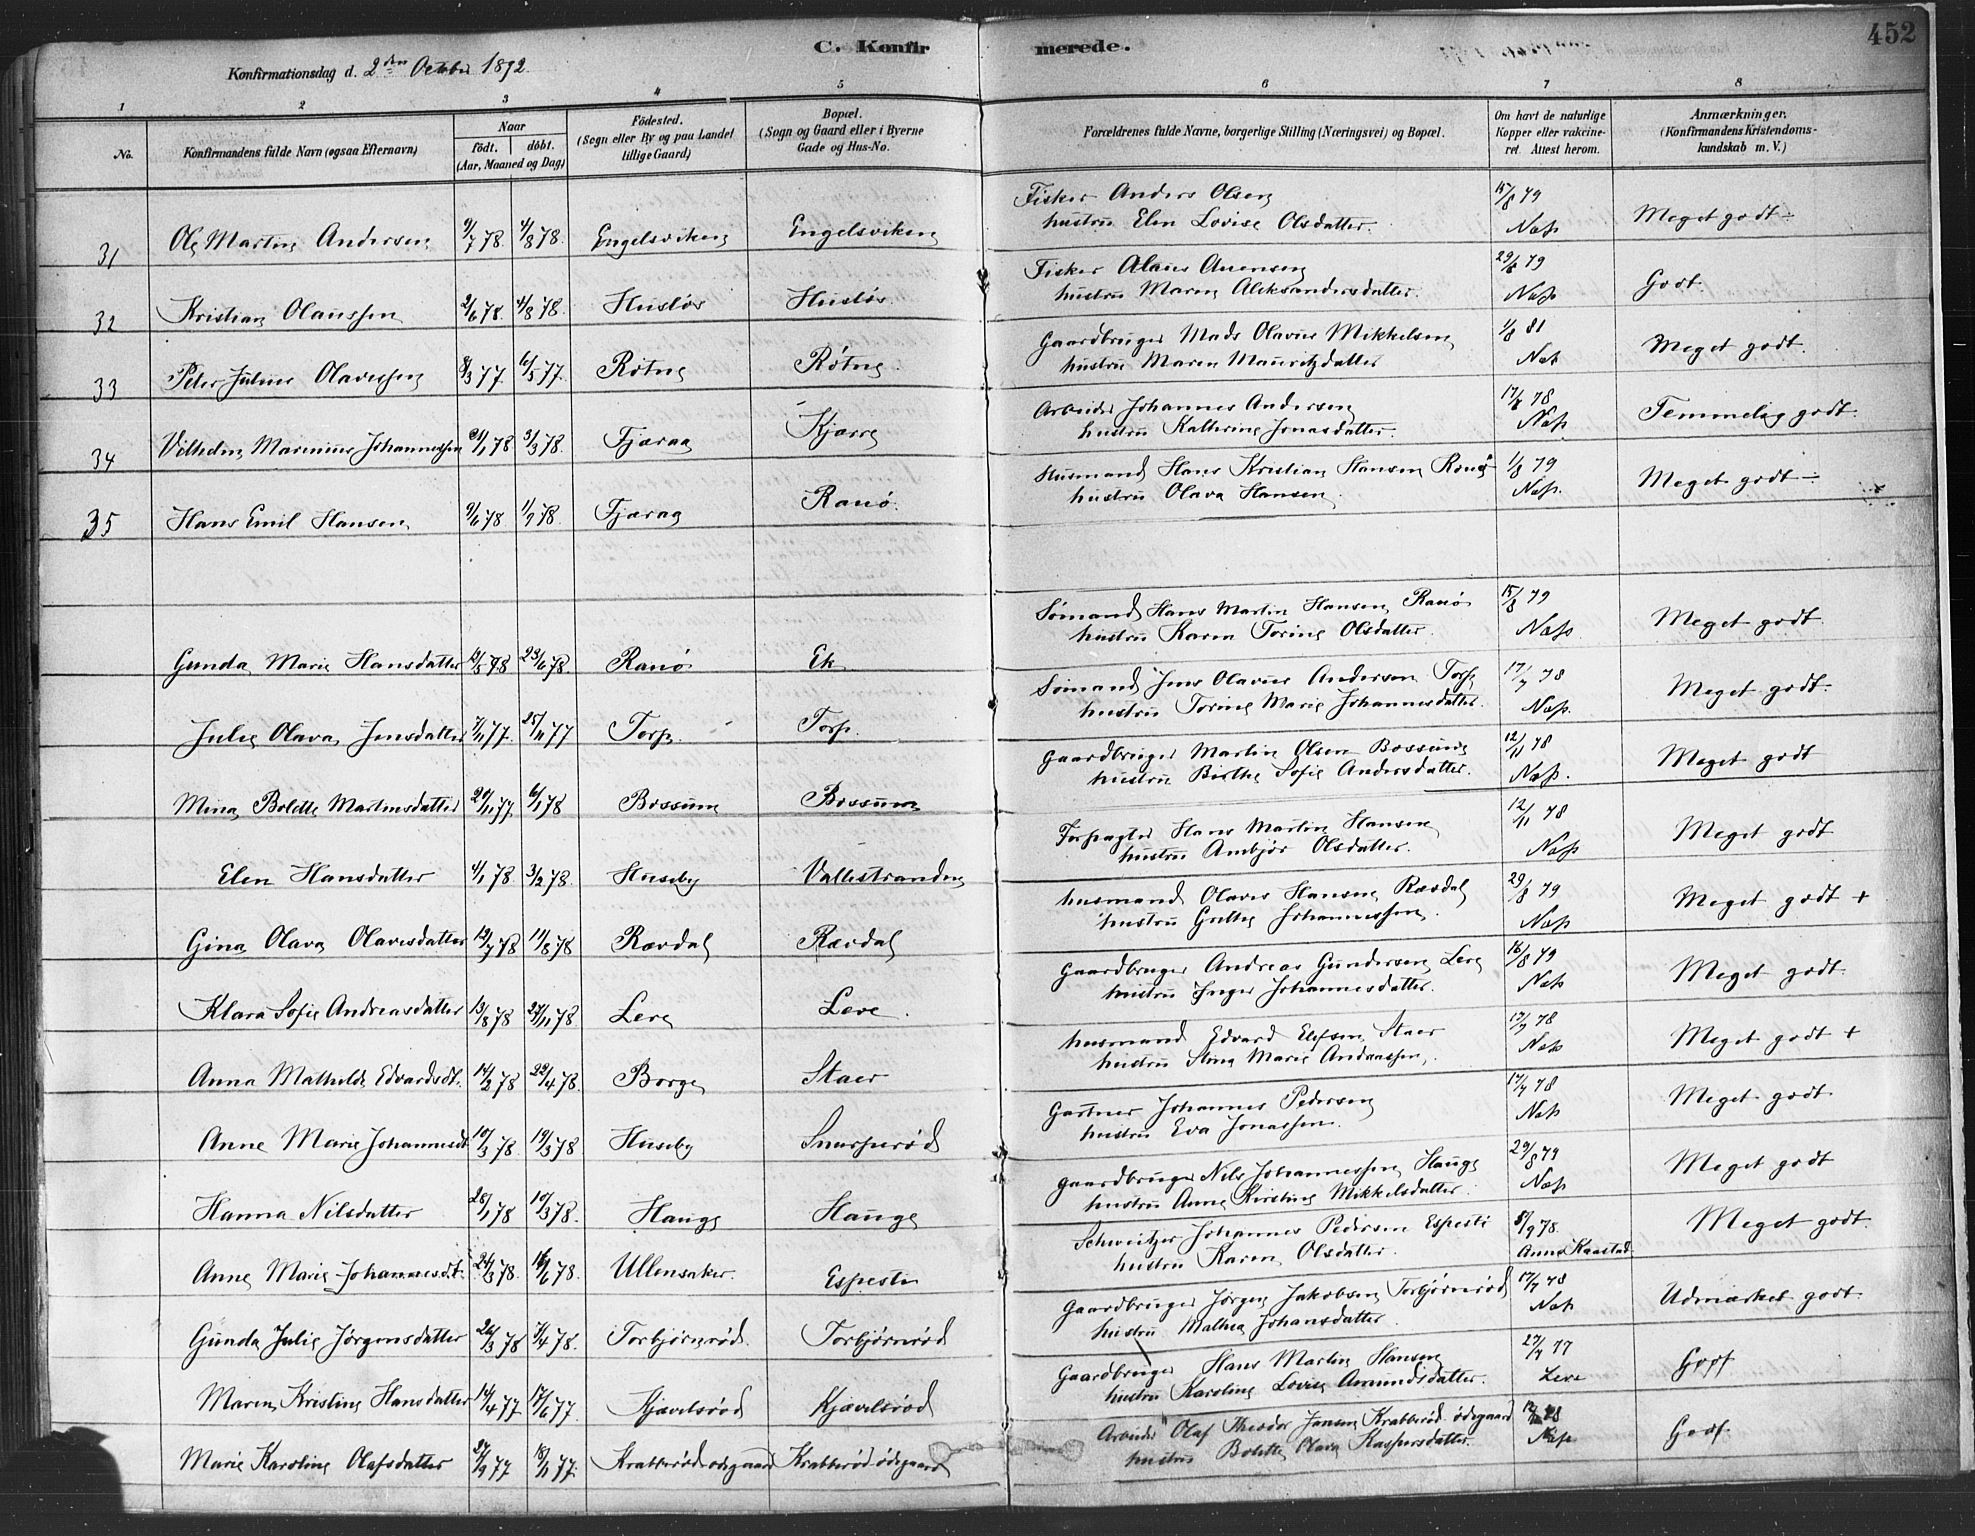 452
C. Konfirmerede.
Konfirmationsdag d. 2den October 1892
1 2 3 4 5 6 7 8
No.
Konfirmandens fulde Navn (ogsaa Efternavn)
Naar
født. døbt.
(Aar, Maaned og Dag)
Fødested.
(Sogn eller By og paa Landet
tillige Gaard)
Bopæl.
(Sogn og Gaard eller i Byerne
Gade og Hus-No.
Forældrenes fulde Navne, borgerlige Stilling (Næringsvei) og Bopæl.
Om havt de naturlige
Kopper eller vakcine-
ret. Attest herom.
Anmærkninger.
(Konfirmandens Kristendoms-
kundskab m. V.)
31 Ole Martin Andersen 9/7 78. 4/8 78. Engelsviken Engelsviken Fisker Anders Olsen 15/8 79 Meget godt
hustru Elen Lovise Olsdatter. Næss
32 Kristian Olaussen 2/6 78. 4/8 78. Husløs Husløs. Fisker Olaus Auensen 29/8 79 Godt
hustru Maren Aleksandersdatter. Næss
33 Peter Julius Olavessen 8/3 77. 6/5 77. Rötne Rötne. Gaardbruger Mads Olavus Mikkelsen 1/8 81 Meget godt.
hustru Maren Mauritzdatter Næss
34 Vilhelm Marinius Johannessen 21/1 78 31/3 78. Fjæraa Kjærre Arbeider Johannes Andersen 17/7 78 Temmelig godt.
hustru Kathrine Jonasdatter. Næss
35 Hans Emil Hansen 9/6 78 1/9 78. Fjæraa Ranø. Husmand Hans Kristian Hansen Ranø 1/8 79 Meget godt
hustru Olava Hansen. Næss.
Gunda Marie Hansdatter 12/5 78 23/6 78. Ranø Ek Sømand Hans Martin Hansen Ranø 15/8 79 Meget godt
hustru Karen Torine Olsdatter. Næss.
Julie Olava Jensdatter 7/11 77. 25/11 77 Torp. Torp. Sømand Jens Olavus Andersen Torp 17/7 78 Meget godt.
hustru Torine Marie Johannesdatter. Næss.
Mina Bolette Martinsdatter 20/11 77. 6/1 78 Bossum Bossum Gaardbruger Martin Olsen Bossum 12/11 78 Meget godt
hustru Birthe Sofie Andersdatter. Næss.
Elen Hansdatter 4/1 78. 3/2 78. Huseby Vallestranden Forpagter Hans Martin Hansen 12/11 78 Meget godt
hustru Ambjør Olsdatter. Næss
Gina Olava Olavesdatter 12/7 78 11/8 78 Rævdal Rævdal husmand Olaves Hansen Rævdal 29/8 79 Meget godt +
hustru Grethe Johannessen. Næss
Klara Sofie Andreasdatter 13/8 78 24/11 78. Lere Lere. Gaardbruger Andreas Gundersen Lere 16/8 79 Meget godt.
hustru Inger Johannesdatter. Næss
Anna Mathilde Edvardsdt. 14/2 78 22/4 78. Borge Staer husmand Edvard Elefsen Staer 17/7 78 Meget godt +
hustru Stina Marie Andreassen. Næss
Anne Marie Johannesdt. 10/3 78. 19/3 78 Huseby Snurperød Gartner Johannes Pedersen 17/7 78 Meget godt
hustru Eva Jonassen. Næss
Hanna Nilsdatter 28/1 78 10/3 78. Hauge Hauge gaardbruger Nils Johannessen Hauge 29/8 79 Meget godt
hustru Anne Kirstine Mikkelsdatter. Næss
Anne Marie Johannesdt. 24/3 78. 16/6 78. Ullensaker. Espesti Schweitzer Johannes Pedersen Espesti 8/9 78. Meget godt.
hustru Karen Olsdatter. Anne Kaastad
Gunda Julie Jørgensdatter 26/3 78 7/4 78. Torbjørnrød Torbjørnrød Gaardbruger Jørgen Jakobsen Torbjørnrød 17/7 78 Udmærket godt.
hustru Mathea Johansdatter. Næss
Maren Kristine Hansdatter 14/4 77 17/6 77. Kjævelsrød Kjævelsrød Gaardbruger Hans Martin Hansen 27/7 77 Godt
hustru Karoline Lovise Amundsdatter. Lere
Marie Karoline Olafsdatter 24/9 77 18/11 77. Krabberød ødegaard Krabberød ødegaard Arbeider Olaf Theodor Jansen Krabberød ødegaard 78 Godt
hustru Bolette Olava Kaspersdatter. Næss